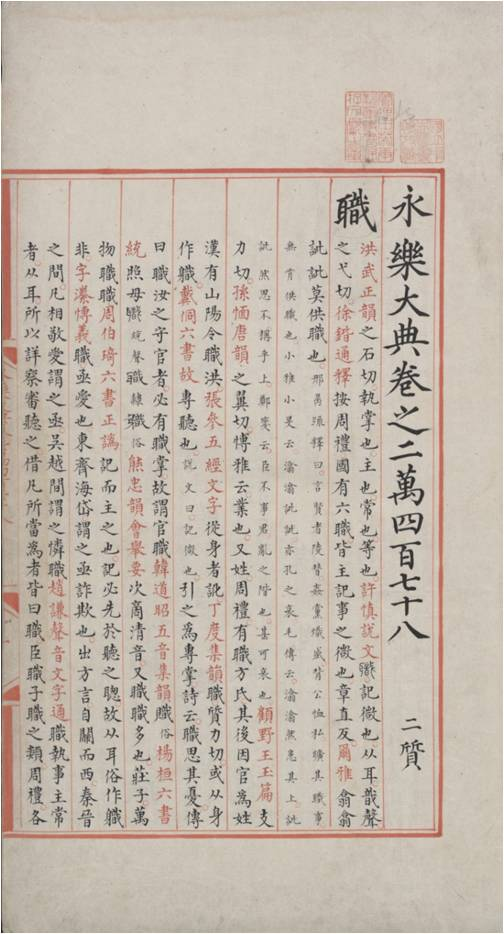 永樂大典卷之二萬四百七十八 二質
職
洪武正韻之石切執掌也主也常也等也許慎說文職記微也从耳戠聲
之弋切徐鍇通釋按周禮國有六職皆主記事之微也章直反爾雅翕翕
訿訿莫供職也邢昺疏釋曰言賢者陵替姦黨熾盛背公恤私曠其職事
無肯供職也小雅小旻云潝潝訿訿亦孔之哀毛傳云潝潝然患其上訿
訿然思不稱乎上鄭箋云臣不事君亂之階也甚可哀也顧野王玉篇支
力切孫愐唐韻之翼切博雅云業也又姓周禮有職方氏其後因官為姓
漢有山陽令職洪張參五經文字從身者訛丁度集韻職質力切或从身
作軄戴侗六書故專聽也說文曰記微也引之為專掌詩云職思其憂傳
曰職汝之守官者必有職掌故謂官職韓道昭五音集韻軄俗楊桓六書
統照母職統聲職隸軄俗熊忠韻會舉要次商清音又職職多也莊子萬
物職職周伯琦六書正譌記而主之也記必先於聽之聰故从耳俗作軄
非字潫博義職亟愛也東齊海岱謂之亟詐欺也出方言自關而西秦晉
之間凡相敬愛謂之亟吳越間謂之憐職趙謙聲音文字通職執事主常
者从耳所以詳察審聽之借凡所當為者皆曰職臣職子職之類周禮各